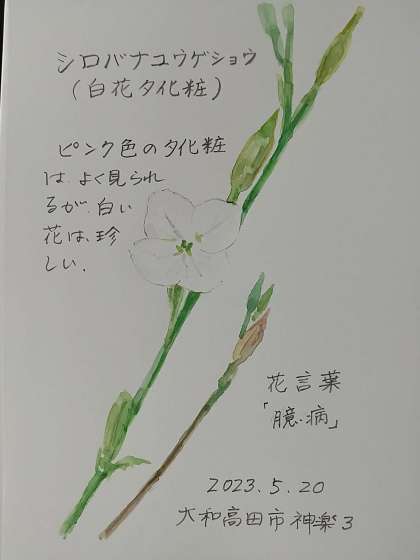 シロバナユウゲショウ
(白花夕化粧)
ピンク色の夕化粧
は、よく見られ
るが、白い
花は、珍
しい.
花言葉
「臆病」
2023.5.20
大和高田市神楽3